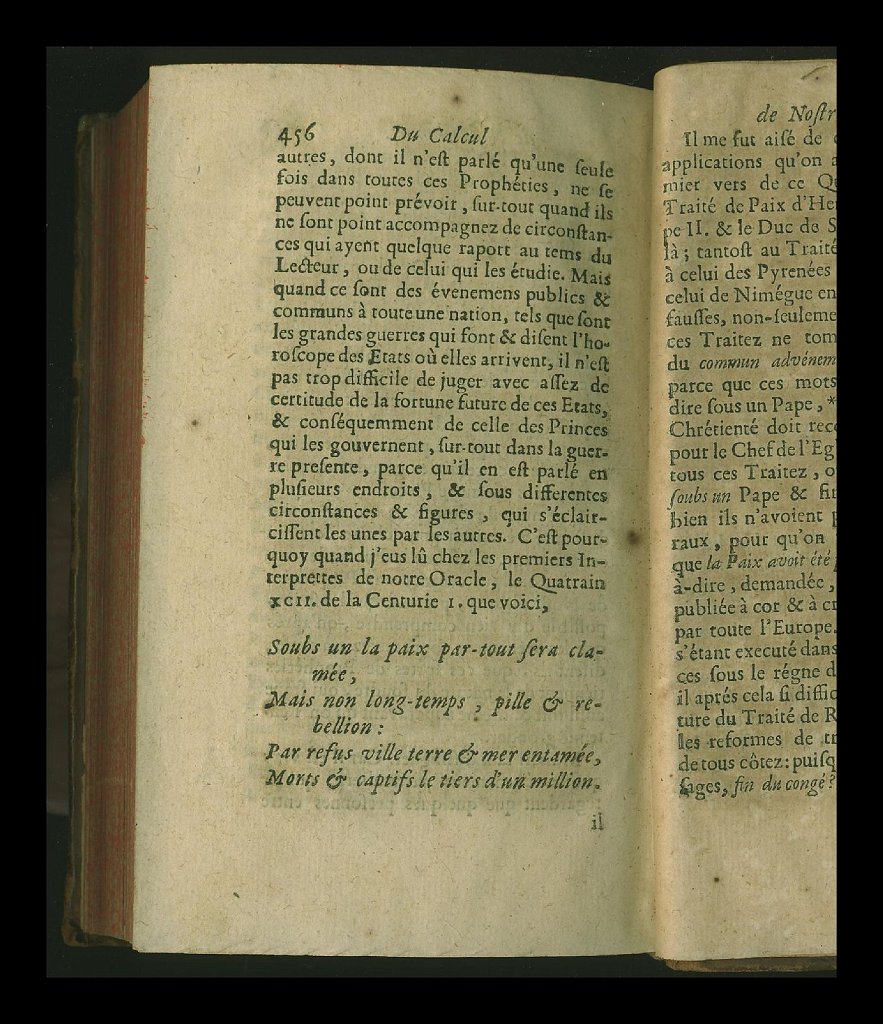 456 Du Calcul
autres, dont il n'eſt parlé qu'une ſeule
fois dans toutes ces Prophéties, ne ſe
peuvent point prévoir, ſur-tout quand ils
ne ſont point accompagnez de circonſtan-
ces qui ayent quelque raport au tems du
Lecteur, ou de celui qui les étudie. Mais
quand ce ſont des évenemens publics &
communs à toute une nation, tels que ſont
les grandes guerres qui font & diſent l'ho-
roſcope des Etats où elles arrivent, il n'eſt
pas trop difficile de juger avec aſſez de
certitude de la fortune future de ces Etats,
& conſéquemment de celle des Princes
qui les gouvernent, ſur-tout dans la guer-
re preſente, parce qu'il en eſt parlé en
pluſieurs endroits, & ſous differentes
circonſtances & figures, qui s'éclair-
ciſſent les unes par les autres. C'eſt pour-
quoy quand j'eus lû chez les premiers In-
terprettes de notre Oracle, le Quatrain
XCII. de la Centurie I. que voici,
Soubs un la paix par-tout ſera cla-
mée,
Mais non long-temps, pille & re-
bellion:
Par refus ville terre & mer entamée,
Morts & captifs le tiers d'un million.
il
de Noſtr
Il me fut aiſé de
applications qu'on a
mier vers de ce Q
Traité de Paix d'He
pe II. & le Duc de S
là; tantoſt au Traité
à celui des Pyrenées
celui de Nimégue en
fauſſes, non-ſeuleme
ces Traitez ne tom
du commun advénem
parce que ces mots
dire ſous un Pape, *
Chrétienté doit rec
pour le Chef de l'Eg
tous ces Traitez, o
ſoubs un Pape & fi
bien ils n'avoient
raux, pour qu'on
que la Paix avoit été
à-dire, demandée,
publiée à cor & à cr
par toute l'Europe.
s'étant executé dans
ces ſous le régne d
il aprés cela ſi diffic
ture du Traité de R
les reformes de tr
de tous côtez: puiſq
ſages, fin du congé?